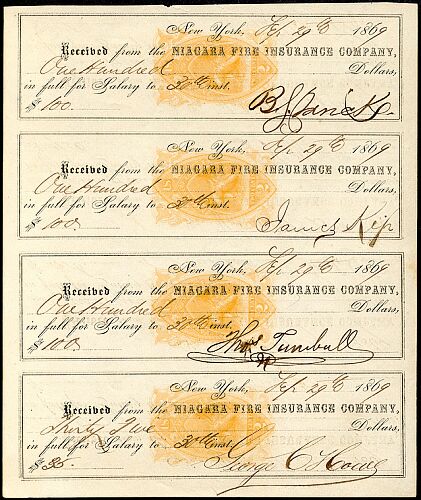 New York, Sep 29th 1869
Received from the NIAGARA FIRE INSURANCE COMPANY,
One Hundred Dollars,
in full for Salary to 30th inst.
$100.
New York, Sep 29th 1869
Received from the NIAGARA FIRE INSURANCE COMPANY,
One Hundred Dollars,
in full for Salary to 30th inst.
$100.
James Kip
New York, Sep 29th 1869
Received from the NIAGARA FIRE INSURANCE COMPANY,
One Hundred Dollars,
in full for Salary to 30th inst.
$100.
Thos Turnbull
New York, Sep 29th 1869
Received from the NIAGARA FIRE INSURANCE COMPANY,
Thirty Five Dollars,
in full for Salary to 30th inst.
$35.
George C Howe